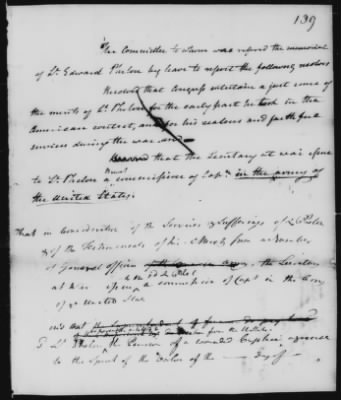 139
The Committee to whom was refered the memorial
of Lt. Edward Phelon beg leave to report the following resolves
Resolved that Congress entertain a just sense of
the merits of Lt. Phelon for the early part he took in the
American contest, and for his zealous and faithful
services during the war, and
Resolved that the Secretary at war issue
to Lt. Phelon a commission of Capt. in the army of
the United States.
That in consideration of the Services & Sufferings of Lt Phelon
& of the Testimonials of his Merit from a number
of General officers the Secretary
at War issue a commission of Capt in the Army
of ye United States
to Lt Phelon the Pension of a wounded Captain, agreeable
to the Spirit of the Resolve of the day of